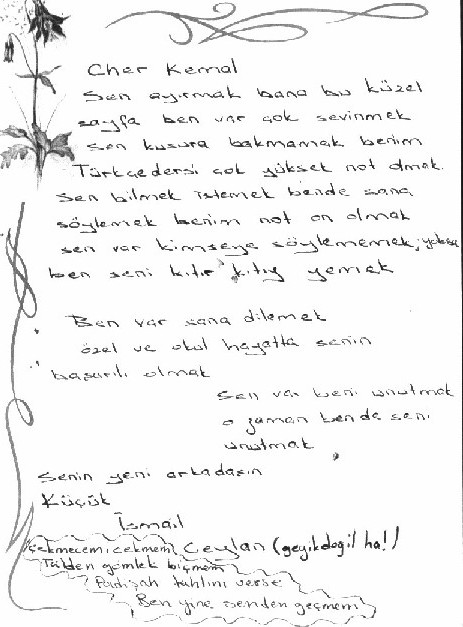 Cher Kemal
Sen ayırmak bana bu küzel
sayfa ben var çok sevinmek
Sen kusura bakmamak benim
Türkçedersi çok yüksek not olmak.
Sen bilmek istemek bende sana
söylemek benim not on olmak
sen var kimseye söylememek, yoksa
ben seni kıtır kıtıy yemek
Ben var sana dilemek
özel ve okul hayatta senin
başarılı olmak
Sen var beni unutmak
o zaman bende seni
unutmak
Senin yeni arkadaşın
Küçük
İsmail
Çekmecemi çekmem Ceylan (geyik değil ha!)
Tülden gömlek biçmem
Padişah tahtını verse
Ben yine senden geçmem